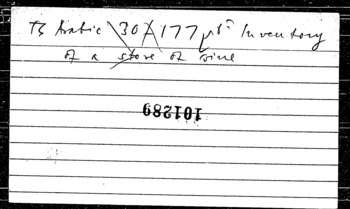 TS Arabic 30 177 Inventory
of a store of wine
101289